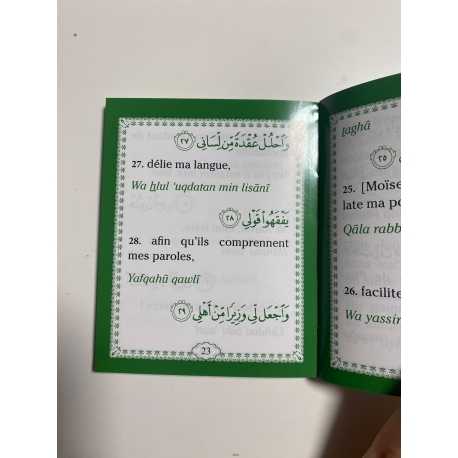 وَاحْلُلْ عُقْدَةً مِّن لِّسَانِي ٢٧
27. délie ma langue,
Wa hlul ‘uqdatan min lisānī
يَفْقَهُوا قَوْلِي ٢٨
28. afin qu'ils comprennent
mes paroles,
Yafqahū qawlī
وَاجْعَل لِّي وَزِيرًا مِّنْ أَهْلِي ٢٩
23
taghā
٢٥
25. [Moïse
late ma po
Qāla rabb
26. facilite
Wa yassir